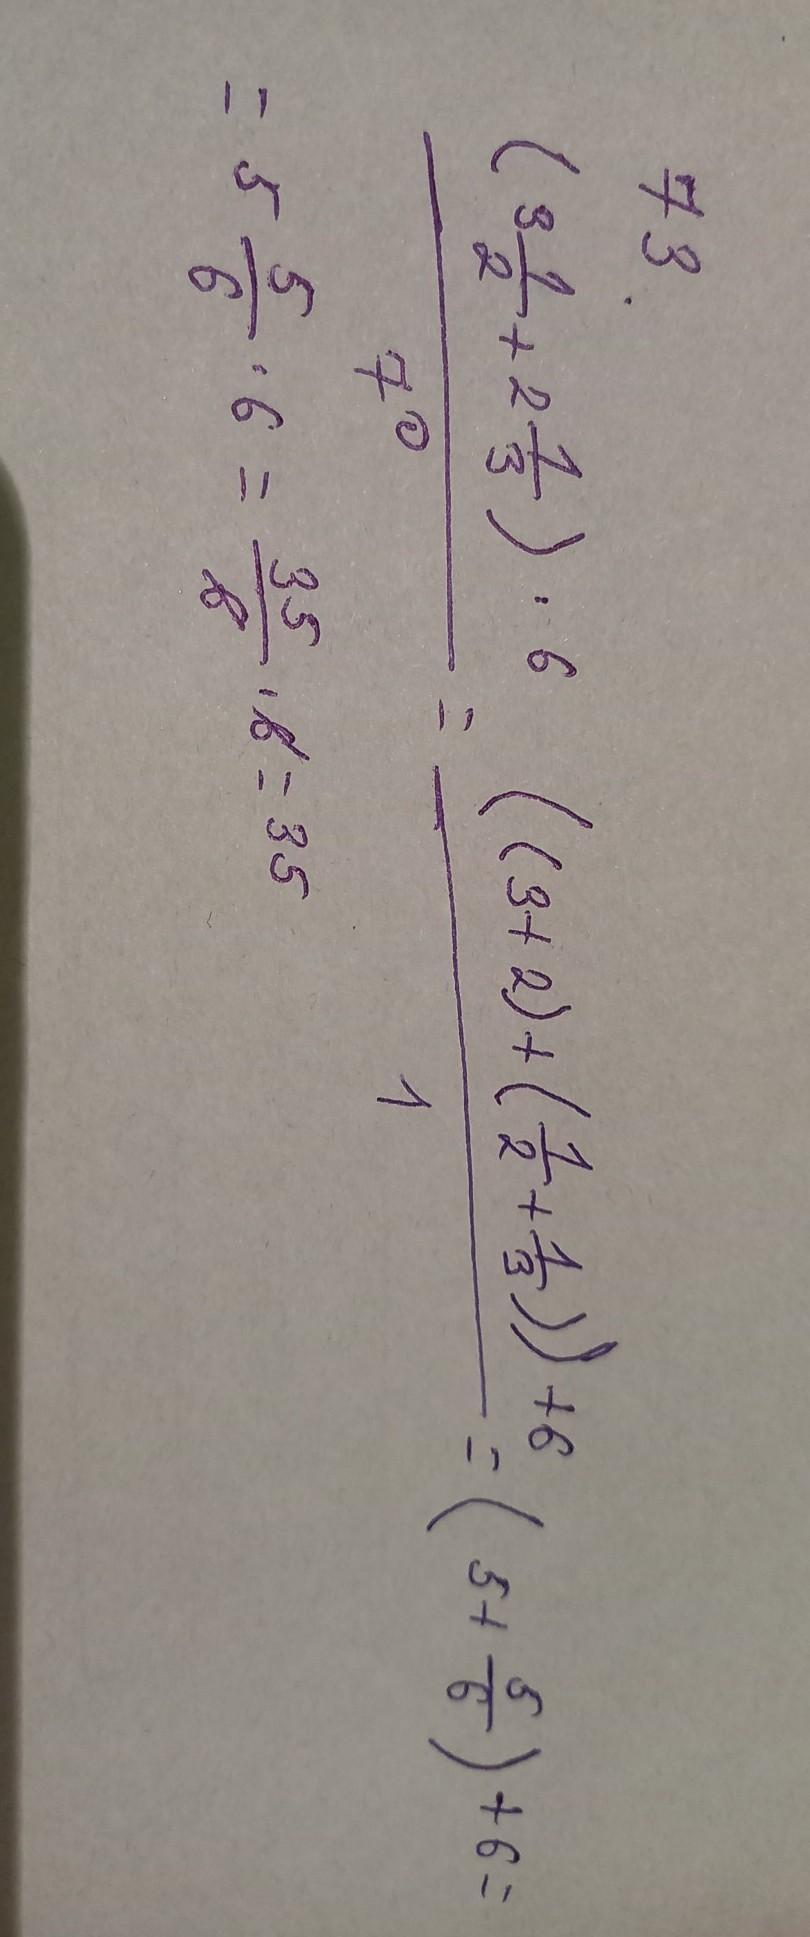 73.
(3 1/2 + 2 1/3) · 6 / 7⁰ = ((3+2) + (1/2 + 1/3)) + 6 / 1 = (5 + 5/6) + 6 =
= 5 5/6 · 6 = 35/6 · 6 = 35